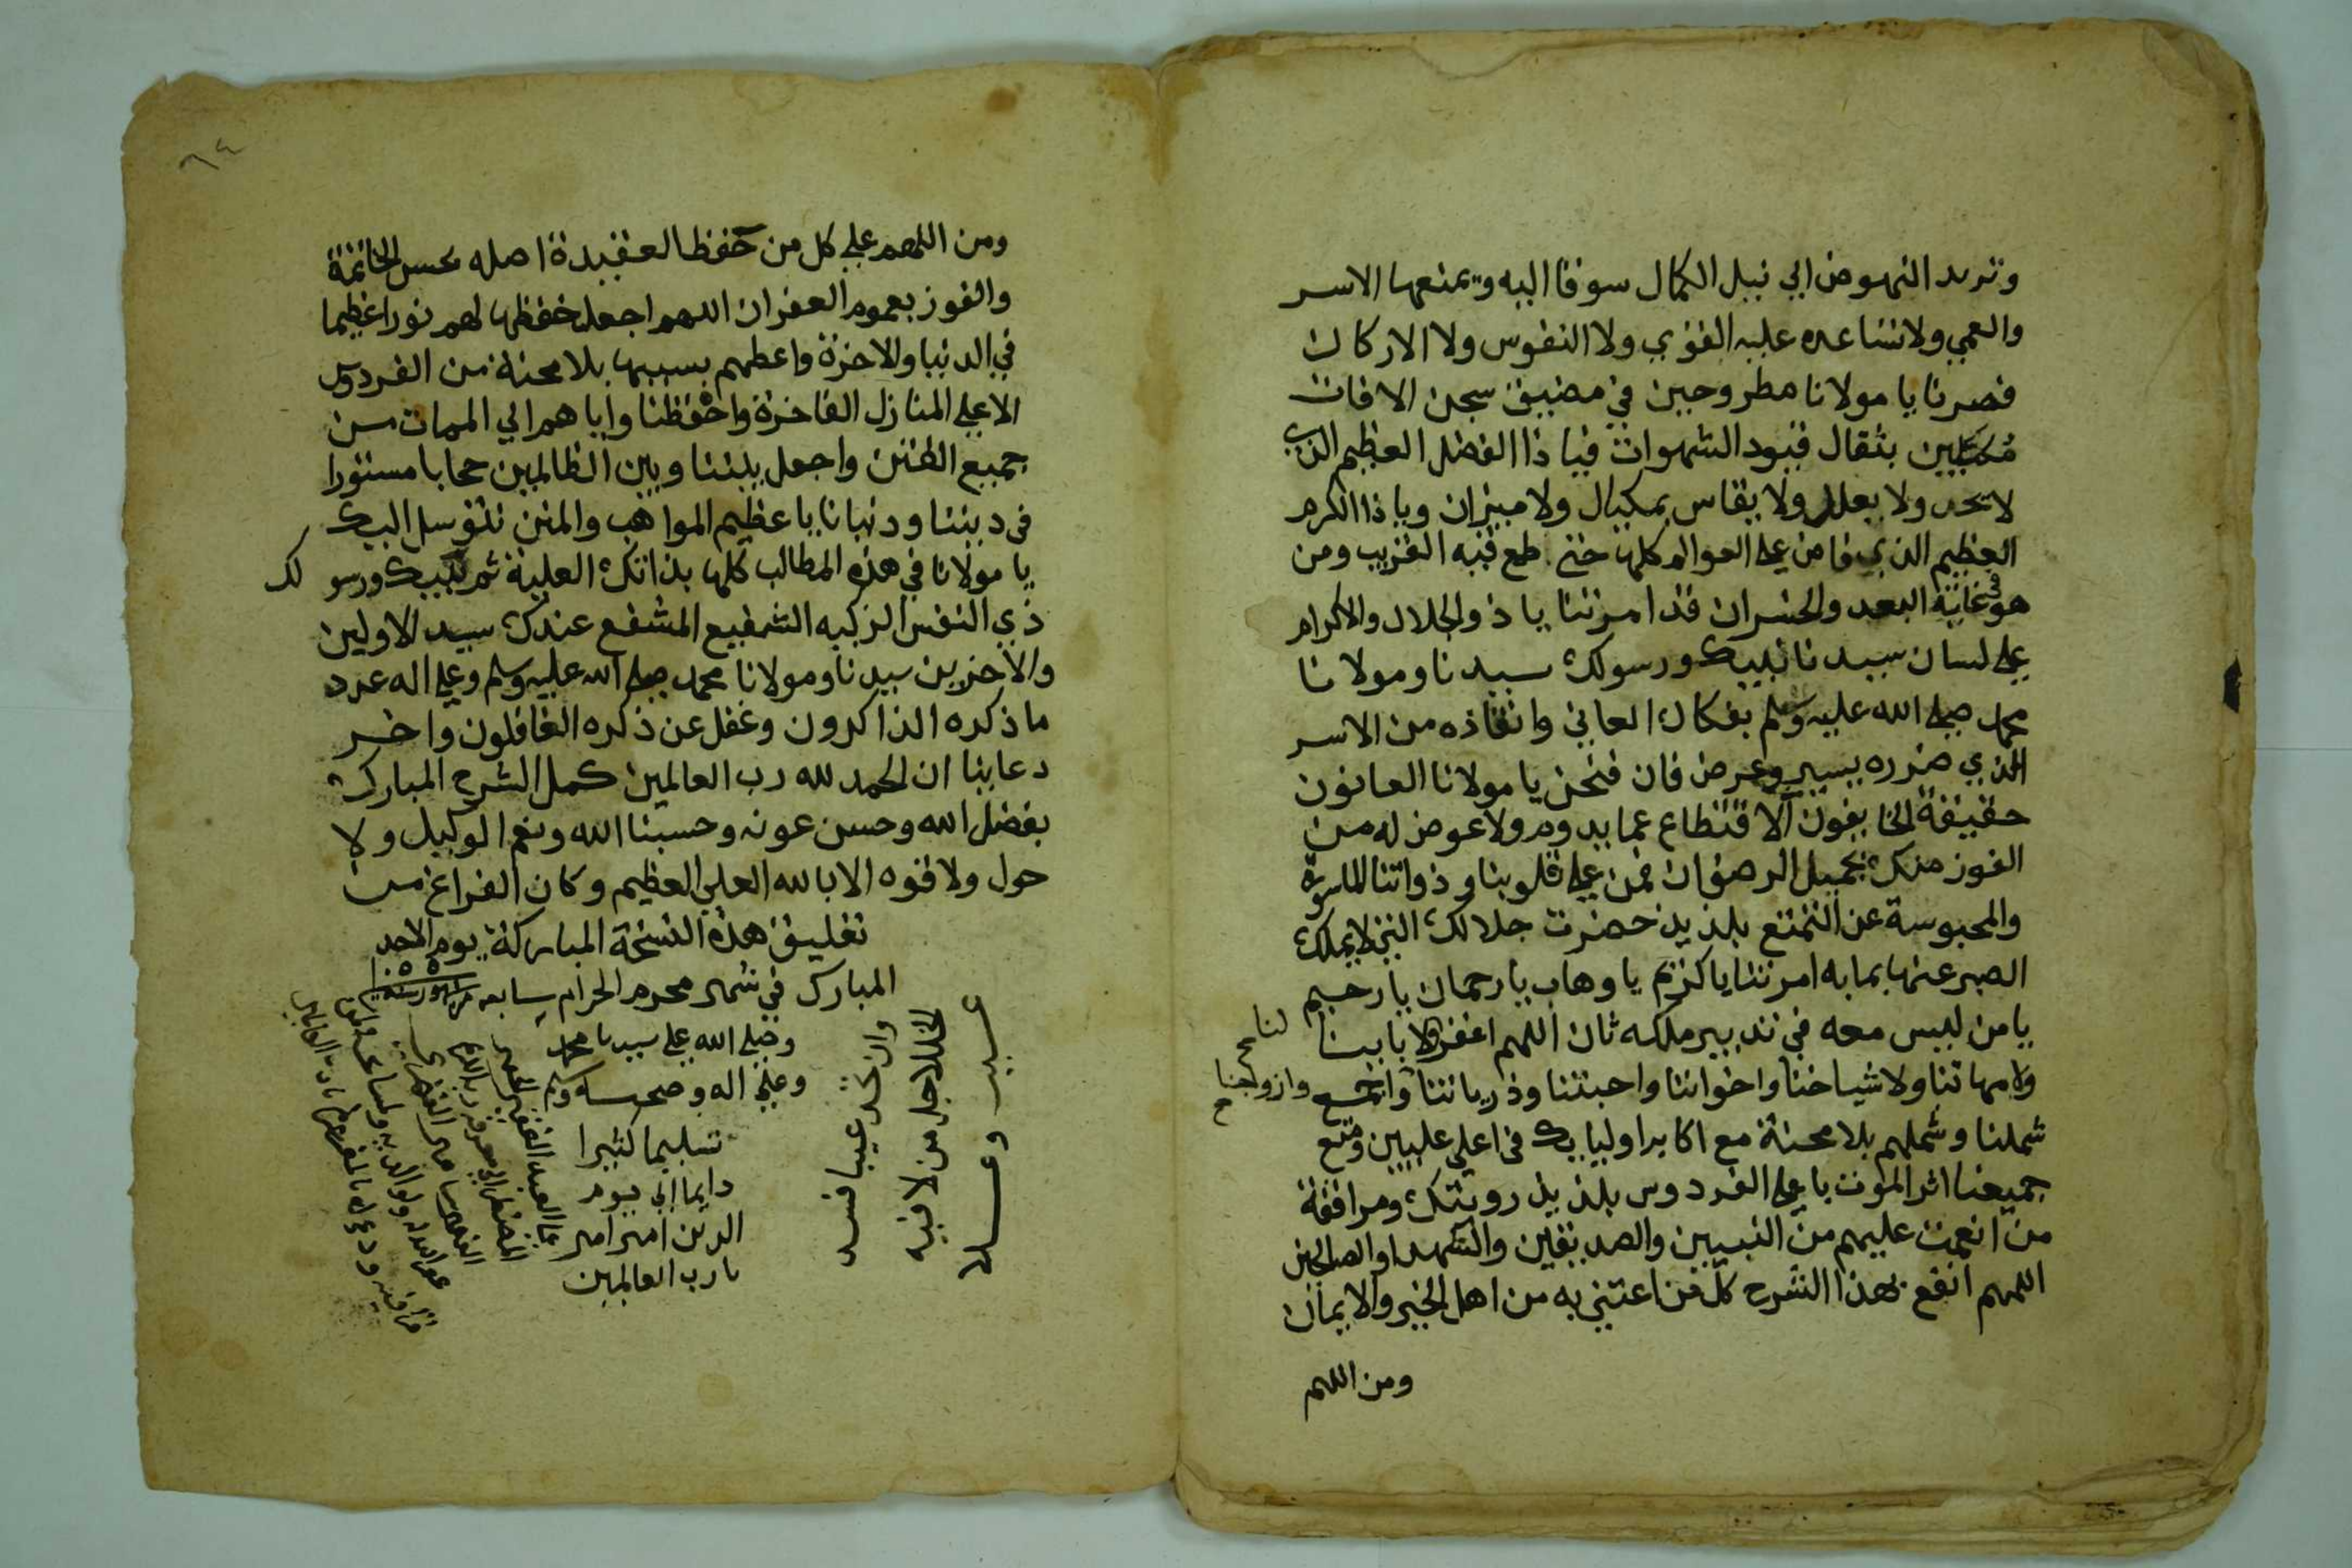 وتريد النهوض الي نيل الكمال سوقا اليه ويمنعها الاسر
والعمي ولا تساعده عليه القوي ولا النفوس ولا الاركان
فصرنا يا مولانا مطروحين في مضيق سجن الافات
مكبلين بثقال قيود الشهوات فيا ذا الفضل العظيم الذي
لا يحد ولا يعلل ولا يقاس بمكيال ولا ميزان ويا ذا الكرم
العظيم الذي فاض علي العوالم كلها حتي طمع فيه القريب ومن
هو في غاية البعد والخسران قد امرتنا يا ذو الجلال والاكرام
علي لسان سيدنا نبيك ورسولك سيدنا ومولانا
محمد صلي الله عليه وسلم بفكاك العاني وانقاذه من الاسر
الذي ضرره يسير وعرض فان فنحن يا مولانا العانون
حقيقة الخايفون الاقتطاع عما يدوم ولا عوض له من
الفوز منك بجميل الرضوان فمن علي قلوبنا وذواتنا الماسورة
والمحبوسة عن التمتع بلذيذ حضرت جلالك التي لا يملك
الصبر عنها بما به امرتنا يا كريم يا وهاب يا رحمان يا رحيم
يا من ليس معه في تدبير ملكه ثان اللهم اغفر لنا ولابابنا
ولامهاتنا ولاشياخنا واخواننا واحبتنا وذرياتنا وازواجنا واجمع
شملنا وشملهم بلا محنة مع اكابر اوليايك في اعلي عليين ومتع
جميعنا اثر الموت باعلي الفردوس بلذيذ رويتك ومرافقة
من انعمت عليهم من النبيين والصديقين والشهدا والصالحين
اللهم انفع بهذا الشرح كل من اعتني به من اهل الخير والايمان
ومن اللهم
٦٤
ومن اللهم علي كل من حفظ العقيدة اصله بحسن الخاتمة
والفوز بعموم الغفران اللهم اجعل حفظها لهم نورا عظيما
في الدنيا والاخرة واعطهم بسببها بلا محنة من الفردوس
الاعلي المنازل الفاخرة واحفظنا واياهم الي الممات من
جميع الفتن واجعل بيننا وبين الظالمين حجابا مستورا
في ديننا ودنيانا يا عظيم المواهب والمنن نتوسل اليك
يا مولانا في هذه المطالب كلها بذاتك العلية ثم بنبيك ورسولك
ذي النفس الزكيه الشفيع المشفع عندك سيد الاولين
والاخرين سيدنا ومولانا محمد صلي الله عليه وسلم وعلي اله عدد
ما ذكره الذاكرون وغفل عن ذكره الغافلون واخر
دعاينا ان الحمد لله رب العالمين كمل الشرح المبارك
بفضل الله وحسن عونه وحسبنا الله ونعم الوكيل ولا
حول ولا قوه الا بالله العلي العظيم وكان الفراغ من
تعليق هذه النسخة المباركة يوم الاحد
المبارك في شهر محرم الحرام سابعه من شهور سنة
وصلي الله علي سيدنا محمد
وعلي اله وصحبه وسلم
تسليما كثيرا
دايما الي يوم
الدين امين امين
يا رب العالمين
وان تجد عيبا فسد
الخللا جل من لا فيه
عيب وعلا